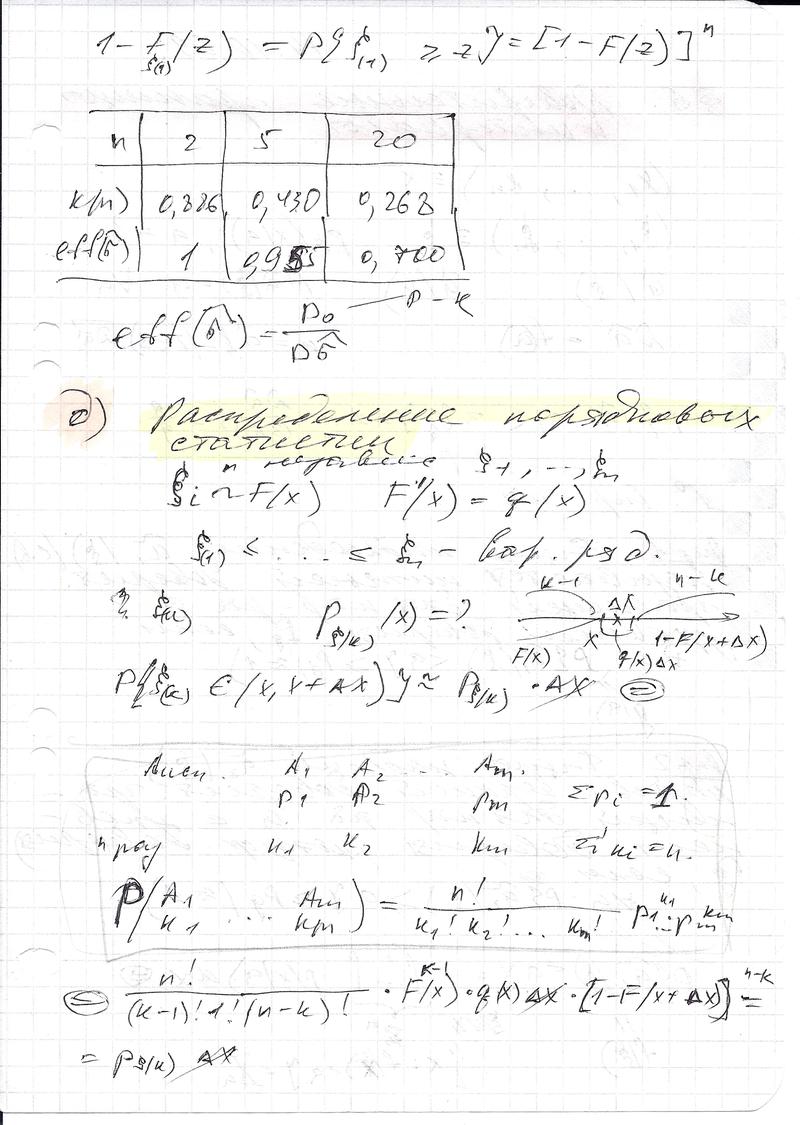 1 - F_ξ(1)(z) = P{ξ_(1) ≥ z} = [1 - F(z)]^n
n 2 5 20
k(n) 0,886 0,430 0,268
eff(σ̂) 1 0,955 0,700
eff(σ̂) = D_0 / Dσ̂ — Р-К
2) Распределение порядковых
статистик
n независ ξ_1, ..., ξ_n
ξ_i ~ F(x) F'(x) = q(x)
ξ_(1) ≤ . . . ≤ ξ_n - вар. ряд.
k-1 Δx n-k
? ξ_(k) P_ξ(k)(x) = ?
F(x) x q(x)Δx 1-F(x+Δx)
P{ξ_(k) ∈ (x, x+Δx)} ≈ P_ξ(k) · Δx =
A_1 A_2 ... A_m.
p_1 p_2 p_m Σp_i = 1.
n k_1 k_2 k_m Σk_i = n.
P(A_1 ... A_m / k_1 ... k_m) = n! / (k_1! k_2! ... k_m!) p_1^k_1 ... p_m^k_m
= n! / ((k-1)! 1! (n-k)!) · F(x)^k-1 · q(x) Δx · [1-F(x+Δx)]^n-k =
= P_ξ(k) Δx